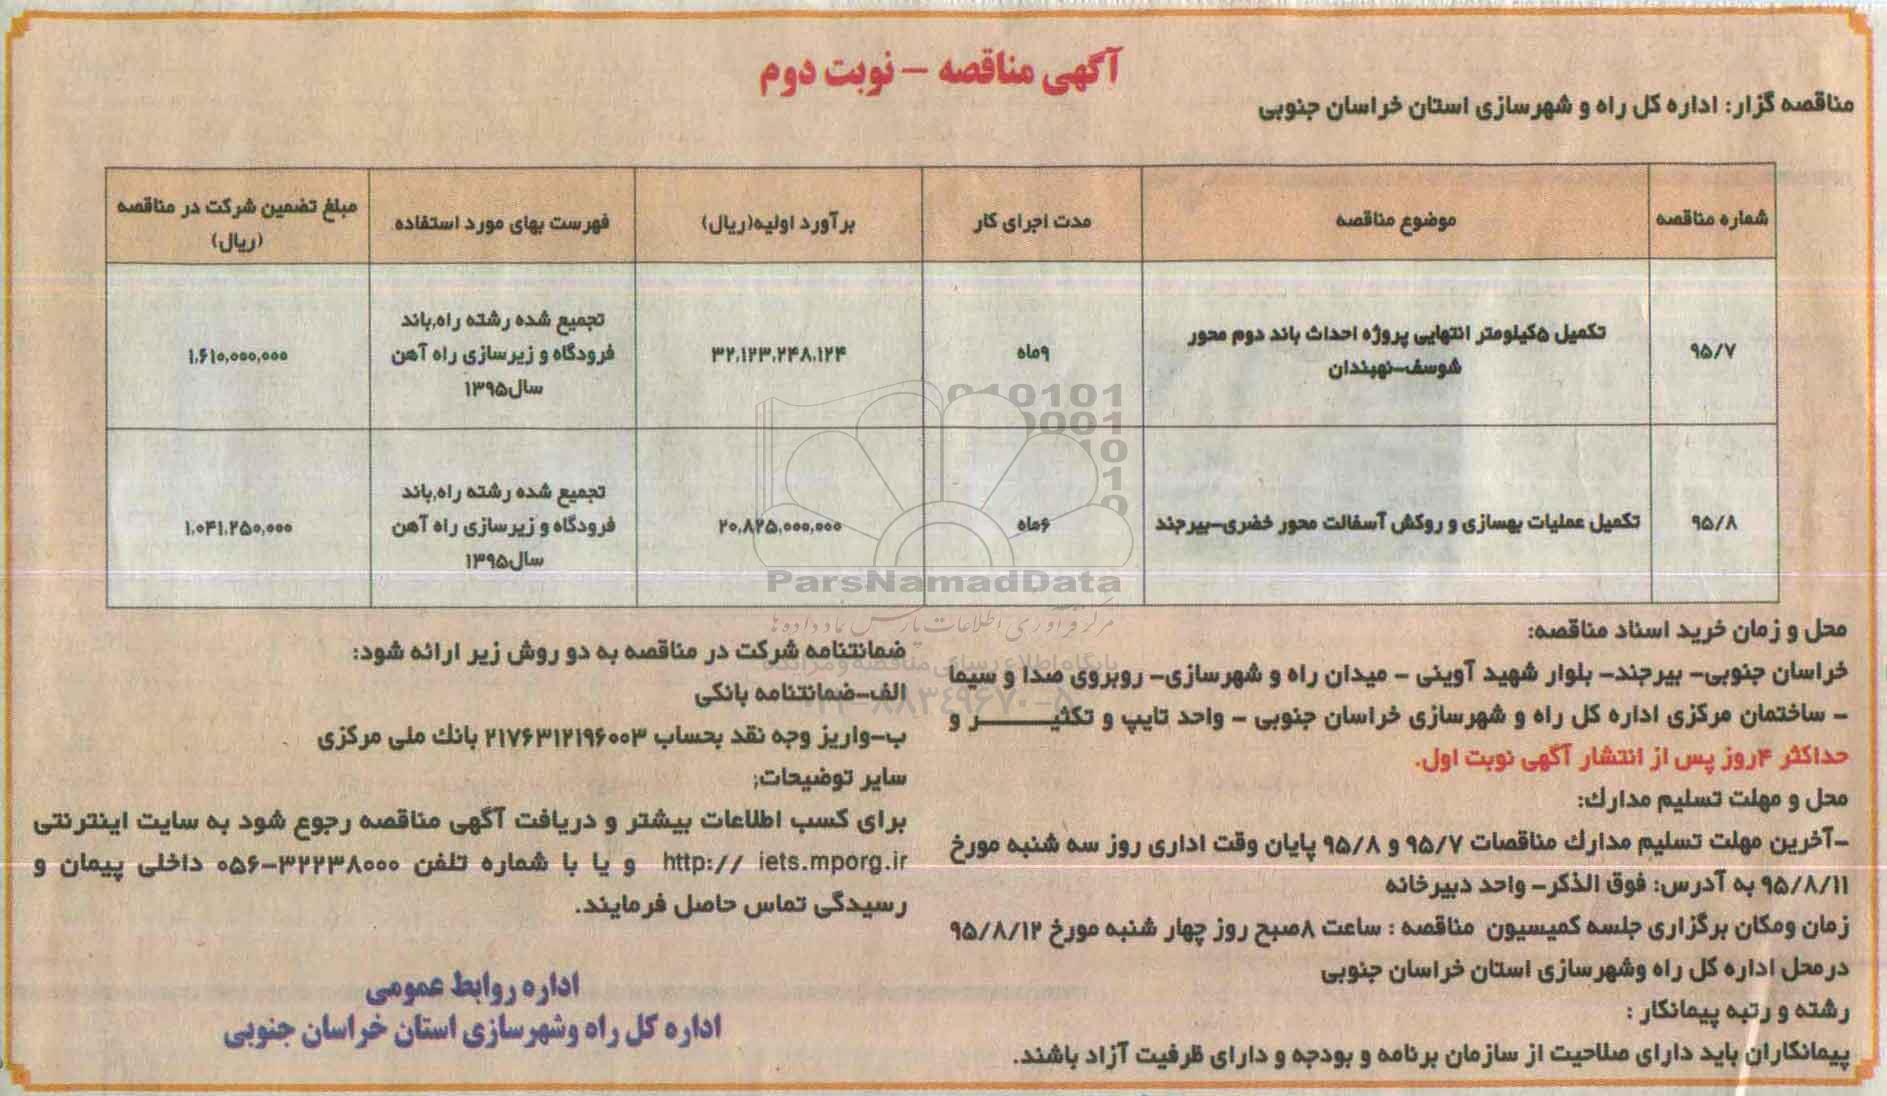 آگهی مناقصه – نوبت دوم
مناقصه گزار: اداره کل راه و شهرسازی استان خراسان جنوبی
شماره مناقصه
موضوع مناقصه
مدت اجرای کار
برآورد اولیه(ریال)
فهرست بهای مورد استفاده
مبلغ تضمین شرکت در مناقصه
(ریال)
۹۵/۷
تکمیل ۵کیلومتر انتهایی پروژه احداث باند دوم محور
شوسف-نهبندان
۹ماه
۳۲,۱۲۳,۲۴۸,۱۲۴
تجمیع شده رشته راه,باند
فرودگاه و زیرسازی راه آهن
سال۱۳۹۵
۱,۶۱۰,۰۰۰,۰۰۰
۹۵/۸
تکمیل عملیات بهسازی و روکش آسفالت محور خضری-بیرجند
۶ماه
۲۰,۸۲۵,۰۰۰,۰۰۰
تجمیع شده رشته راه,باند
فرودگاه و زیرسازی راه آهن
سال۱۳۹۵
۱,۰۴۱,۲۵۰,۰۰۰
محل و زمان خرید اسناد مناقصه:
خراسان جنوبی- بیرجند- بلوار شهید آوینی - میدان راه و شهرسازی- روبروی صدا و سیما
- ساختمان مرکزی اداره کل راه و شهرسازی خراسان جنوبی - واحد تایپ و تکثیر و
حداکثر ۴روز پس از انتشار آگهی نوبت اول.
محل و مهلت تسلیم مدارك:
-آخرین مهلت تسلیم مدارك مناقصات ۹۵/۷ و ۹۵/۸ پایان وقت اداری روز سه شنبه مورخ
۹۵/۸/۱۱ به آدرس: فوق الذکر- واحد دبیرخانه
زمان ومکان برگزاری جلسه کمیسیون مناقصه : ساعت ۸صبح روز چهار شنبه مورخ ۹۵/۸/۱۲
درمحل اداره کل راه وشهرسازی استان خراسان جنوبی
رشته و رتبه پیمانکار :
پیمانکاران باید دارای صلاحیت از سازمان برنامه و بودجه و دارای ظرفیت آزاد باشند.
ضمانتنامه شرکت در مناقصه به دو روش زیر ارائه شود:
الف-ضمانتنامه بانکی
ب-واریز وجه نقد بحساب ۲۱۷۶۳۱۲۱۹۶۰۰۳ بانك ملی مرکزی
سایر توضیحات;
برای کسب اطلاعات بیشتر و دریافت آگهی مناقصه رجوع شود به سایت اینترنتی
http:// iets.mporg.ir و یا با شماره تلفن ۳۲۲۳۸۰۰۰-۰۵۶ داخلی پیمان و
رسیدگی تماس حاصل فرمایند.
اداره روابط عمومی
اداره کل راه وشهرسازی استان خراسان جنوبی
ParsNamadData
مرکز فرآوری اطلاعات پارس نماد داده ها
پایگاه اطلاع رسانی مناقصه و مزایده